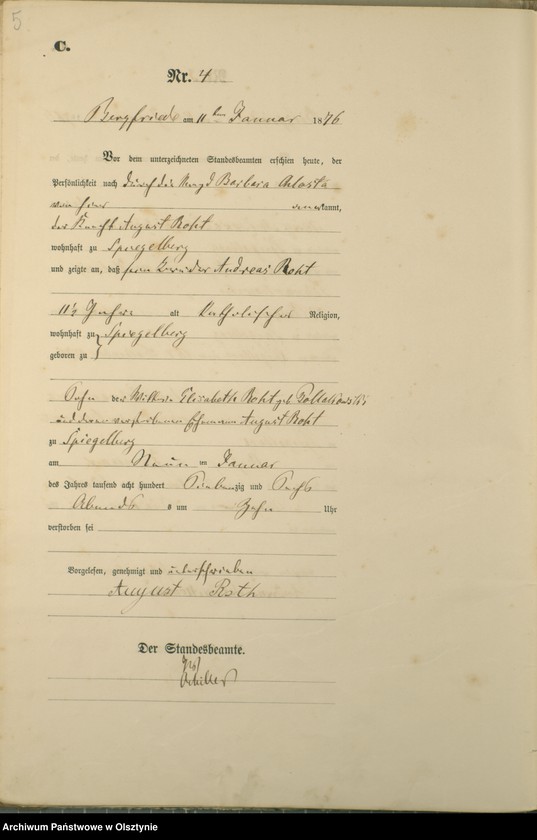 5
C.
Nr. 4
Bergfriede am 11ten Januar 1876
Vor dem unterzeichneten Standesbeamten erschien heute, der
Persönlichkeit nach durch die Magd Barbara
von hier anerkannt,
der Knecht August Roht
wohnhaft zu Spiegelberg
und zeigte an, daß sein Bruder Andreas Roht
11½ Jahre alt katholischer Religion,
wohnhaft zu Spiegelberg
geboren zu
Sohn der Wittwe Elisabeth Roht geb
und deren verstorbenen Ehemann August Roht
zu Spiegelberg
am Neun ten Januar
des Jahres tausend acht hundert Siebenzig und Sechs
Abends um Zehn Uhr
verstorben sei
Vorgelesen, genehmigt und unterschrieben
August Roth
Der Standesbeamte.
Archiwum Państwowe w Olsztynie